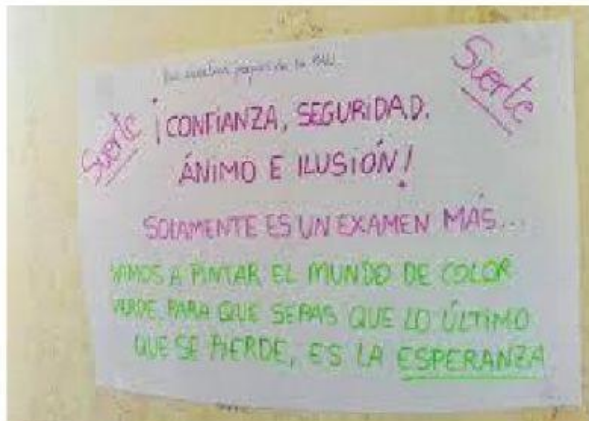 Suerte
Suerte
¡CONFIANZA, SEGURIDAD,
ÁNIMO E ILUSIÓN!
SOLAMENTE ES UN EXAMEN MÁS...
VAMOS A PINTAR EL MUNDO DE COLOR
VERDE, PARA QUE SEPAS QUE LO ÚLTIMO
QUE SE PIERDE, ES LA ESPERANZA